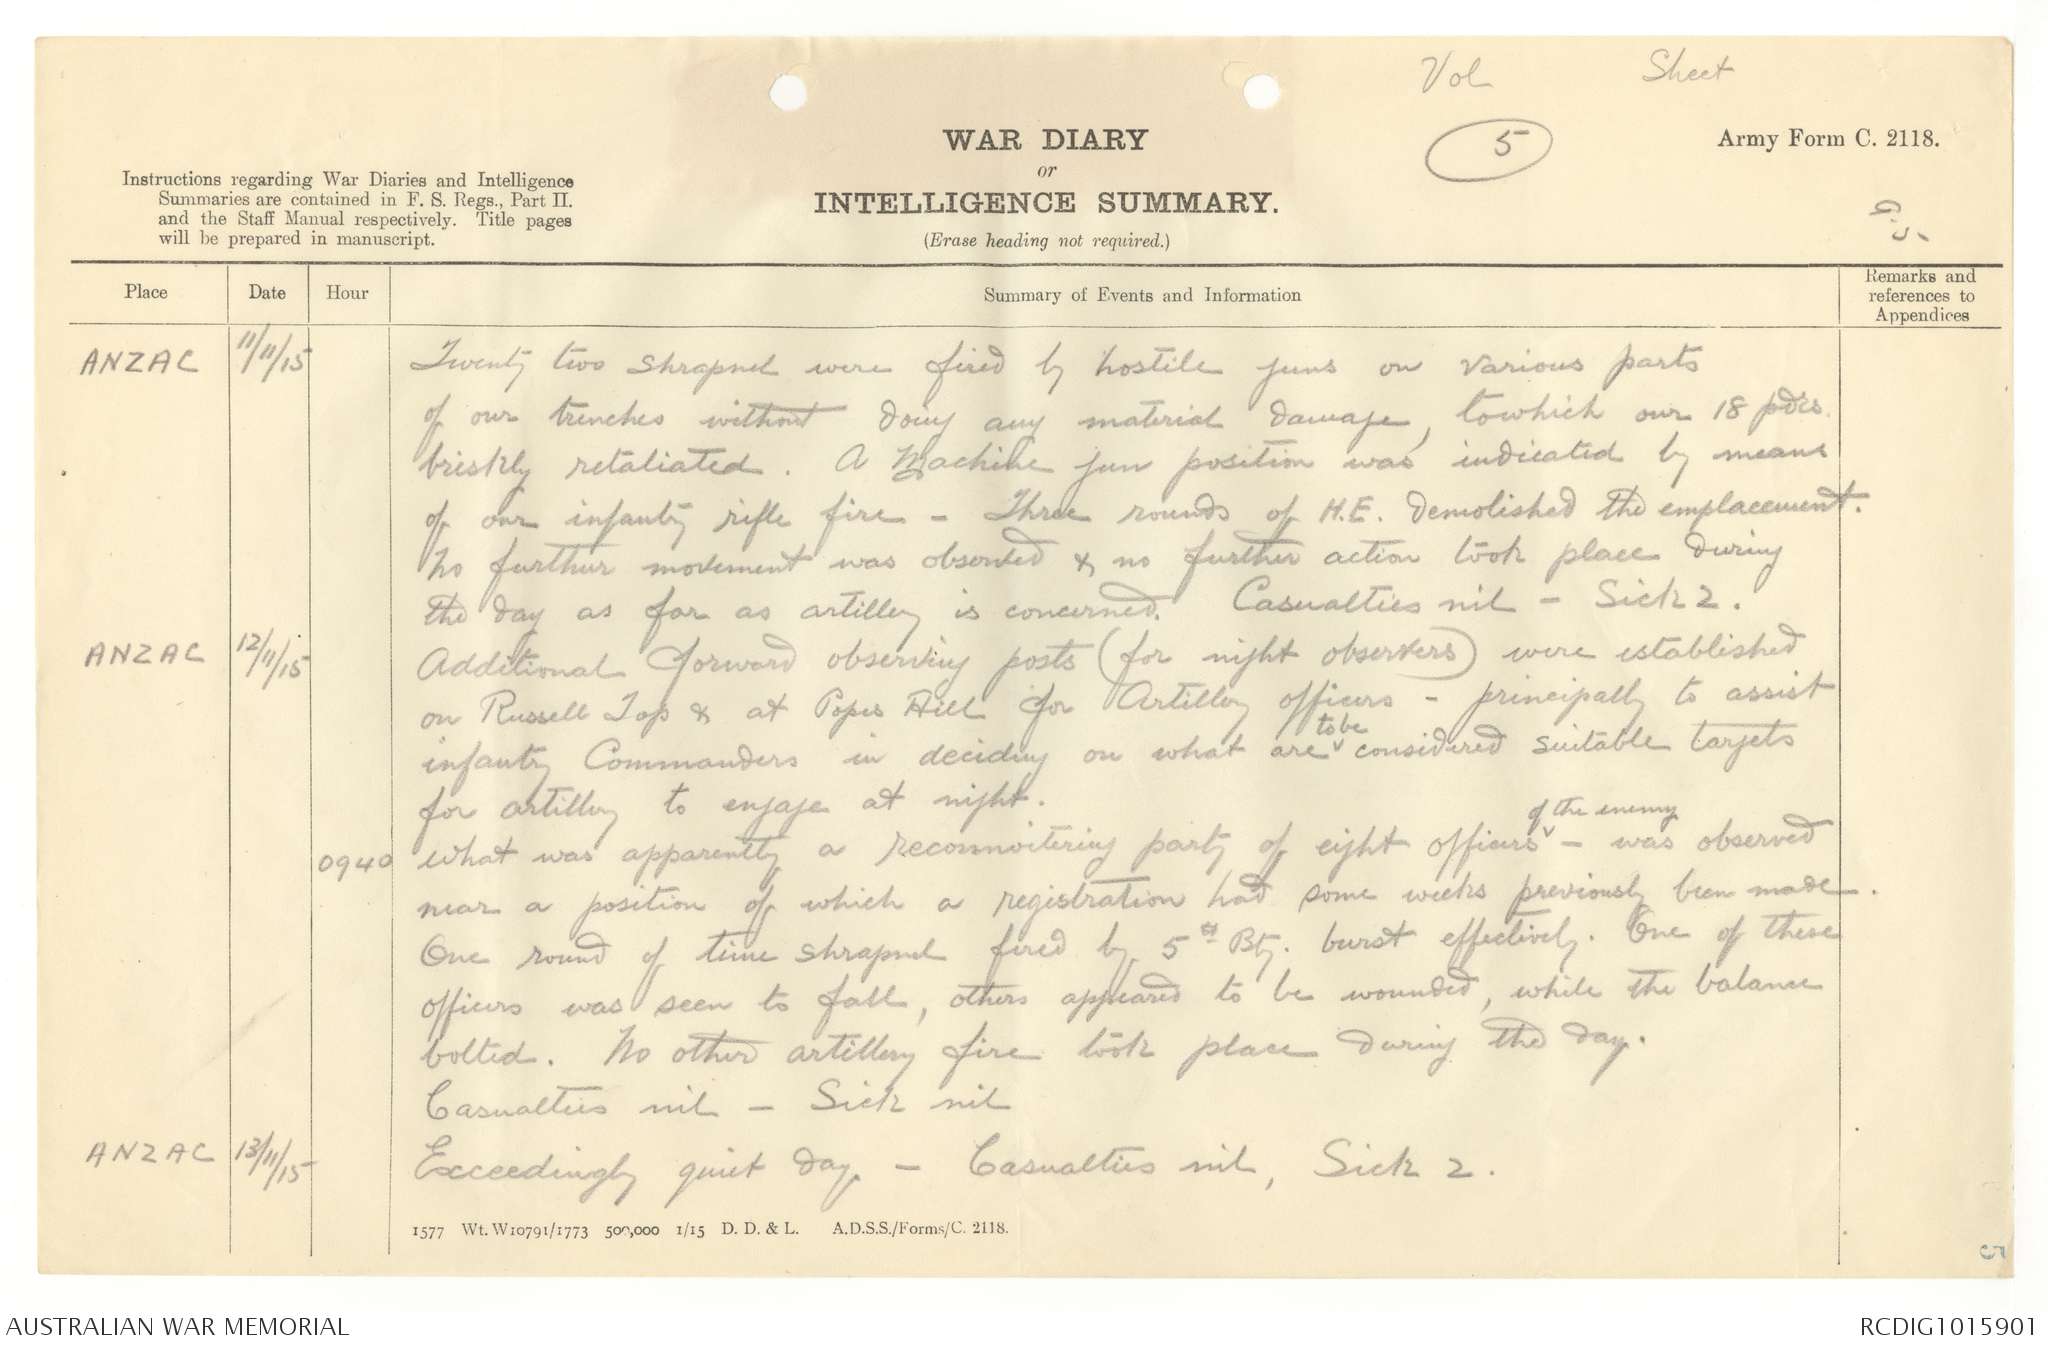 Vol Sheet
WAR DIARY
or
INTELLIGENCE SUMMARY.
(Erase heading not required.)
5
Army Form C. 2118.
Instructions regarding War Diaries and Intelligence
Summaries are contained in F. S. Regs., Part II.
and the Staff Manual respectively. Title pages
will be prepared in manuscript.
Place Date Hour Summary of Events and Information Remarks and references to Appendices
ANZAC 11/11/15 Twenty two shrapnel were fired by hostile guns on various parts
of our trenches without doing any material damage, to which our 18 pdrs.
briskly retaliated. A Machine gun position was indicated by means
of our infantry rifle fire – Three rounds of H.E. demolished the emplacement.
No further movement was observed & no further action took place during
the day as far as artillery is concerned. Casualties nil – Sick 2.
ANZAC 12/11/15 Additional forward observing posts (for night observers) were established
on Russell Top & at Popes Hill for Artillery officers – principally to assist
infantry Commanders in deciding on what are to be considered suitable targets
for artillery to engage at night.
0940 What was apparently a reconnoitering party of eight officers of the enemy – was observed
near a position of which a registration had some weeks previously been made.
One round of time shrapnel fired by 5th Bty. burst effectively. One of these
officers was seen to fall, others appeared to be wounded, while the balance
bolted. No other artillery fire took place during the day.
Casualties nil – Sick nil
ANZAC 13/11/15 Exceedingly quiet day – Casualties nil, Sick 2.
1577 Wt. W10791/1773 500,000 1/15 D. D. & L. A.D.S.S./Forms/C. 2118.
AUSTRALIAN WAR MEMORIAL RCDIG1015901